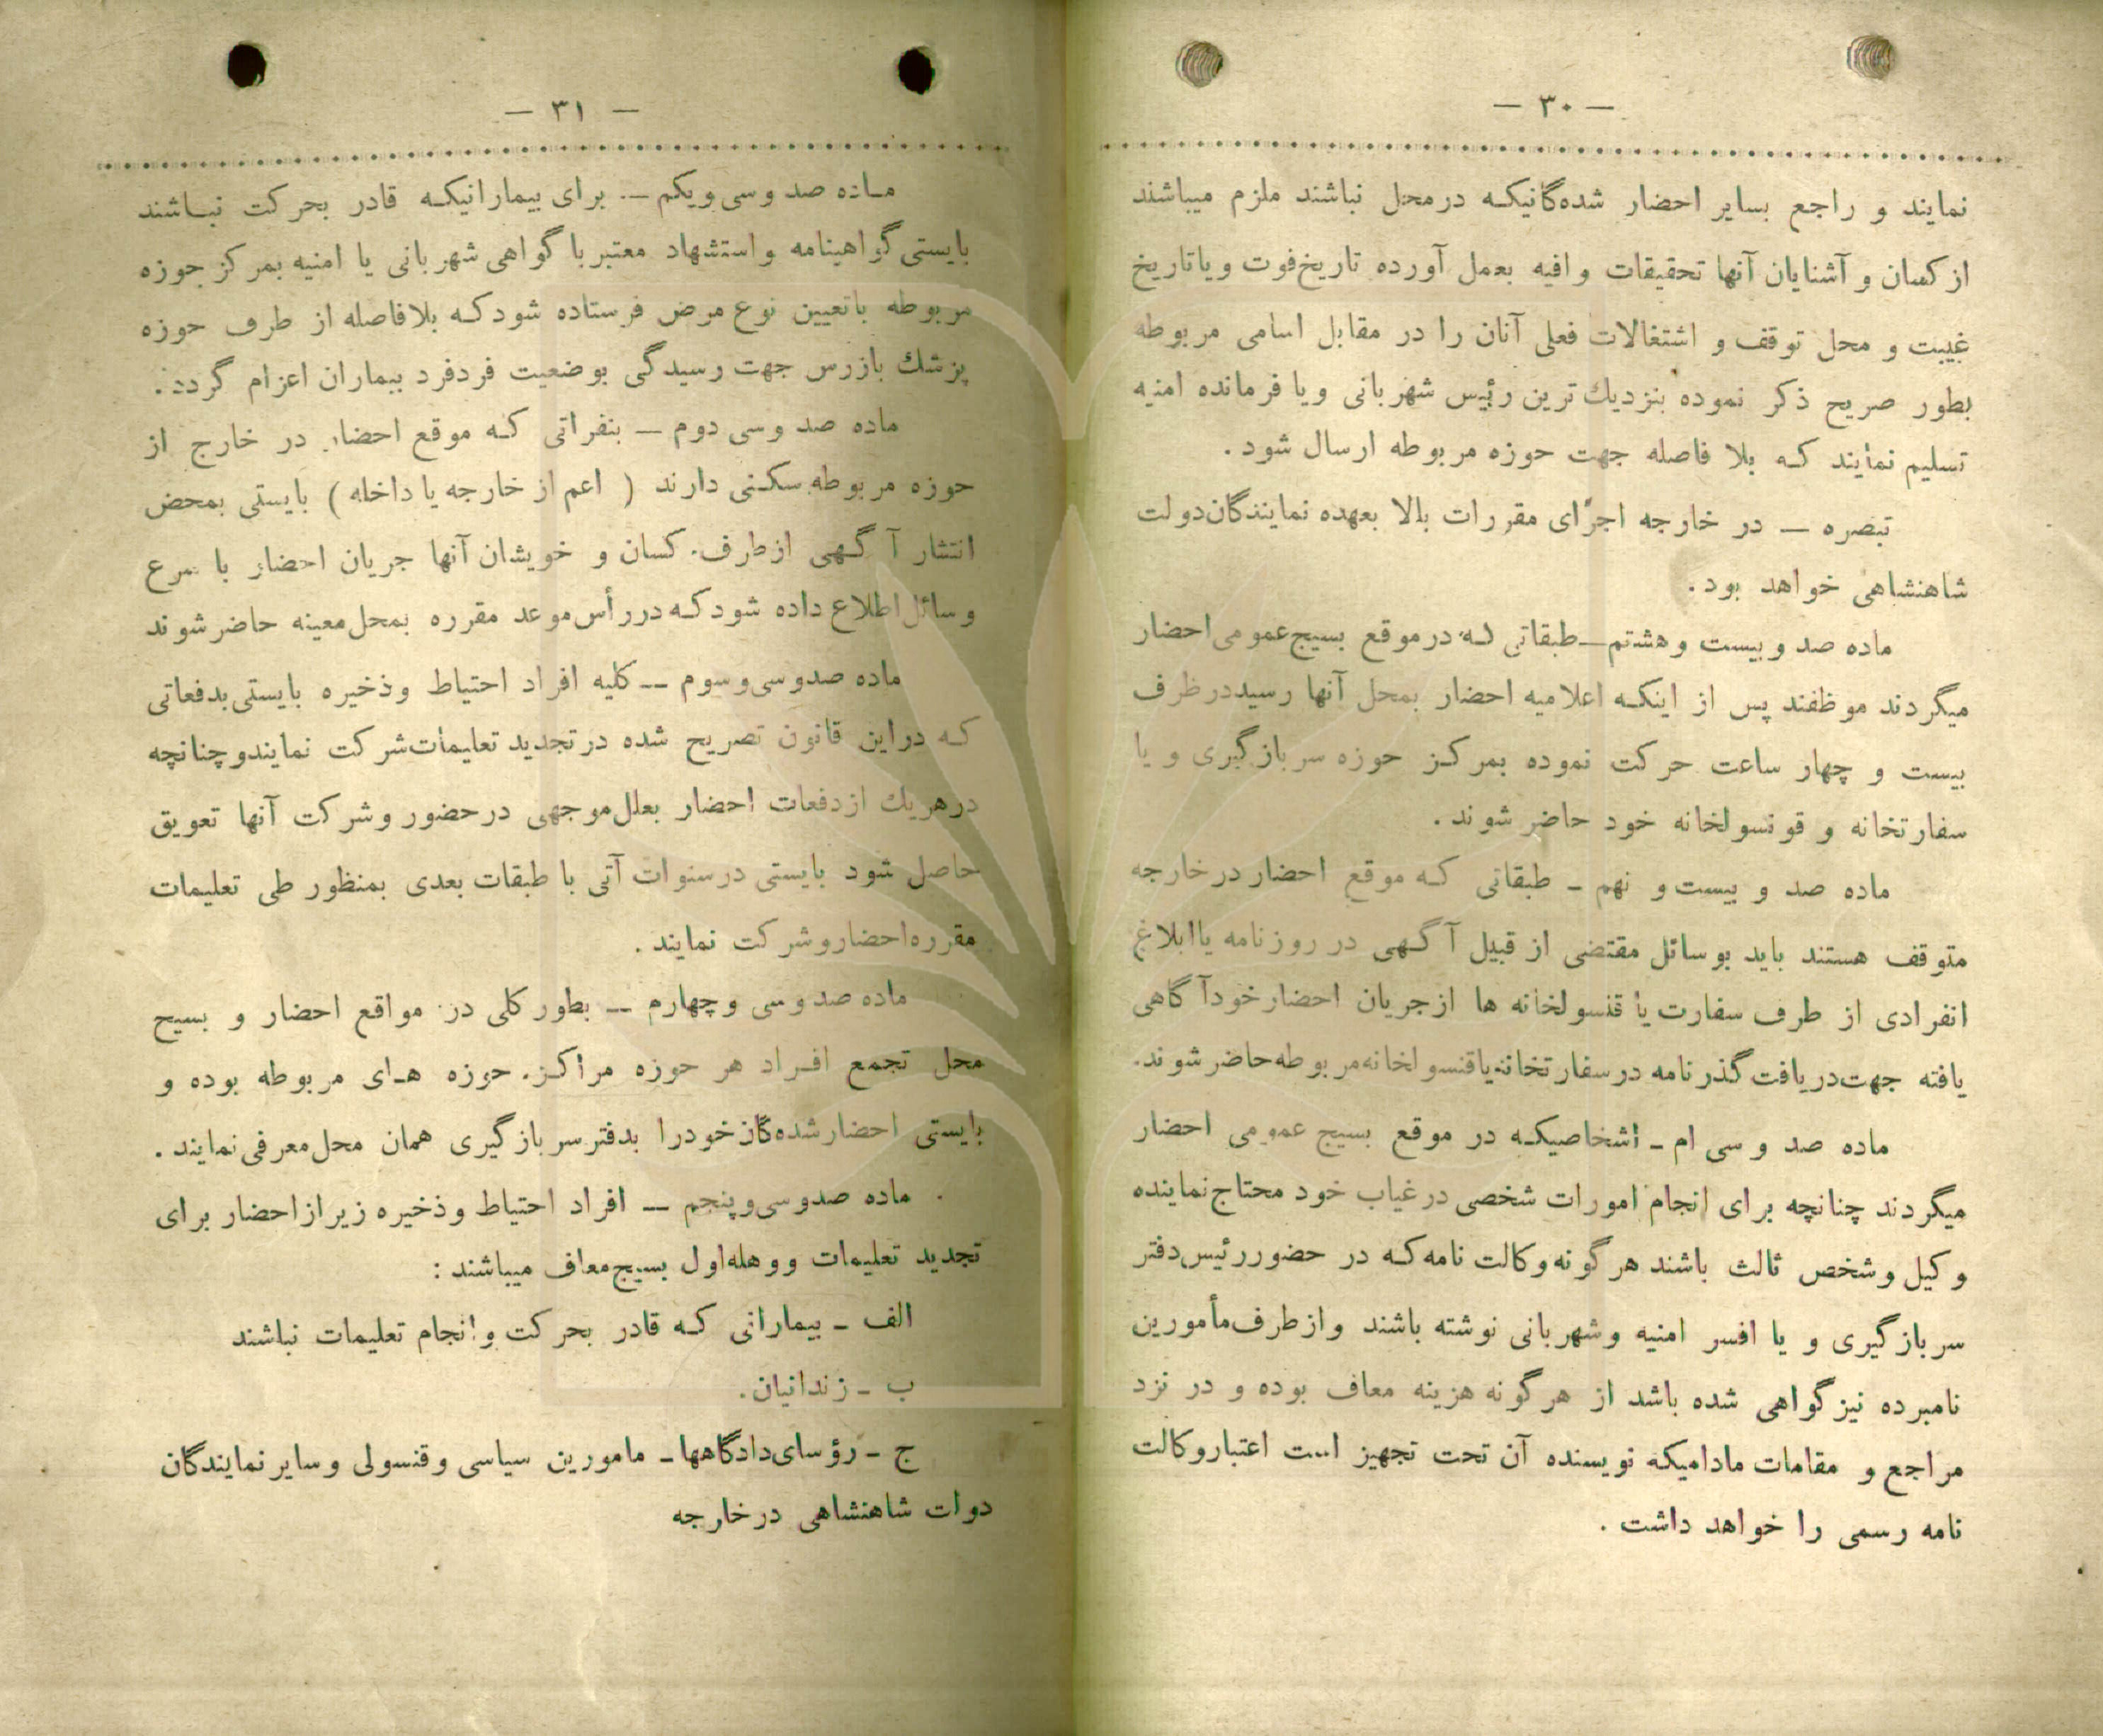 — ۳۰ —
نمایند و راجع بسایر احضار شده‌گانیکه درمحل نباشند ملزم میباشند
از کسان و آشنایان آنها تحقیقات وافیه بعمل آورده تاریخ فوت و یا تاریخ
غیبت و محل توقف و اشتغالات فعلی آنان را در مقابل اسامی مربوطه
بطور صریح ذکر نموده بنزدیك ترین رئیس شهربانی ویا فرمانده امنیه
تسلیم نمایند که بلا فاصله جهت حوزه مربوطه ارسال شود .
تبصره — در خارجه اجرای مقررات بالا بعهده نمایندگان دولت
شاهنشاهی خواهد بود .
ماده صد و بیست و هشتم — طبقاتی که در موقع بسیج عمومی احضار
میگردند موظفند پس از اینکه اعلامیه احضار بمحل آنها رسید در ظرف
بیست و چهار ساعت حرکت نموده بمرکز حوزه سربازگیری و یا
سفارتخانه و قونسولخانه خود حاضر شوند .
ماده صد و بیست و نهم - طبقاتی که موقع احضار در خارجه
متوقف هستند باید بوسائل مقتضی از قبیل آگهی در روزنامه یا ابلاغ
انفرادی از طرف سفارت یا قنسولخانه ها از جریان احضار خود آگاهی
یافته جهت دریافت گذرنامه در سفارتخانه یا قنسولخانه مربوطه حاضر شوند.
ماده صد و سی ام - اشخاصیکه در موقع بسیج عمومی احضار
میگردند چنانچه برای انجام امورات شخصی در غیاب خود محتاج نماینده
وکیل و شخص ثالث باشند هرگونه وکالت نامه که در حضور رئیس دفتر
سربازگیری و یا افسر امنیه وشهربانی نوشته باشند و از طرف مأمورین
نامبرده نیز گواهی شده باشد از هرگونه هزینه معاف بوده و در نزد
مراجع و مقامات مادامیکه نویسنده آن تحت تجهیز است اعتبار وکالت
نامه رسمی را خواهد داشت .
— ۳۱ —
ماده صد و سی ویکم — برای بیمارانیکه قادر بحرکت نباشند
بایستی گواهینامه و استشهاد معتبر با گواهی شهربانی یا امنیه بمرکز حوزه
مربوطه باتعیین نوع مرض فرستاده شود که بلافاصله از طرف حوزه
پزشك بازرس جهت رسیدگی بوضعیت فرد فرد بیماران اعزام گردد .
ماده صد وسی دوم — بنفراتی که موقع احضار در خارج از
حوزه مربوطه سکنی دارند ( اعم از خارجه یا داخله ) بایستی بمحض
انتشار آگهی از طرف کسان و خویشان آنها جریان احضار با سرع
وسائل اطلاع داده شود که در رأس موعد مقرره بمحل معینه حاضر شوند
ماده صدوسی‌وسوم — کلیه افراد احتیاط وذخیره بایستی بدفعاتی
که در این قانون تصریح شده در تجدید تعلیمات شرکت نمایند و چنانچه
در هریك از دفعات احضار بعلل موجهی در حضور وشرکت آنها تعویق
حاصل شود بایستی در سنوات آتی با طبقات بعدی بمنظور طی تعلیمات
مقرره احضار و شرکت نمایند .
ماده صد وسی وچهارم — بطور کلی در مواقع احضار و بسیج
محل تجمع افراد هر حوزه مراکز حوزه های مربوطه بوده و
بایستی احضار شده‌گان خود را بدفتر سربازگیری همان محل معرفی نمایند .
ماده صدوسی‌وپنجم — افراد احتیاط وذخیره زیر از احضار برای
تجدید تعلیمات ووهله اول بسیج معاف میباشند :
الف - بیمارانی که قادر بحرکت وانجام تعلیمات نباشند
ب - زندانیان .
ج - رؤسای دادگاهها - مامورین سیاسی وقنسولی و سایر نمایندگان
دولت شاهنشاهی در خارجه